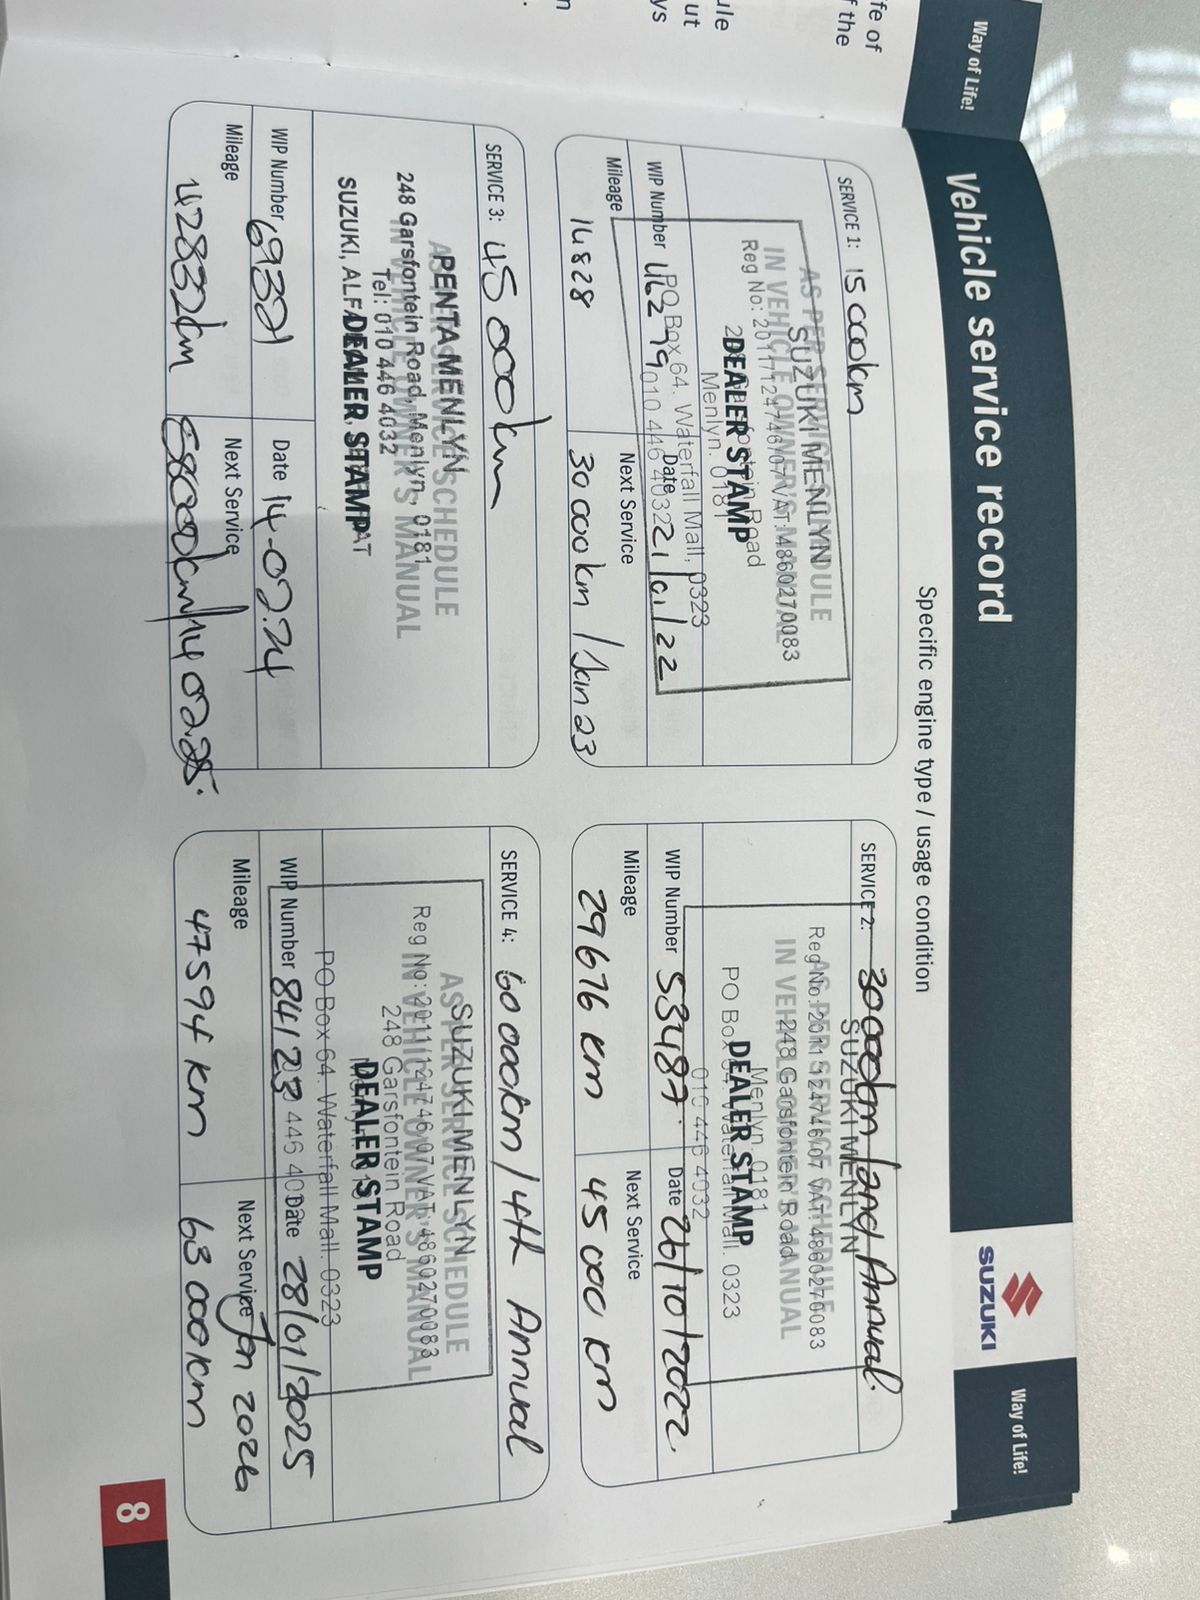 ife of
f the
ule
ut
ys
n
Way of Life!
Vehicle service record
SUZUKI
Way of Life!
Specific engine type / usage condition
SERVICE 1: 15 000km
AS PER SERVICE SCHEDULE
IN VEHICLE OWNER'S MANUAL
SUZUKI MENLYN
Reg No: 2011/124746/07 VAT:4860270083
248 Garsfontein Road
Menlyn. 0181
DEALER STAMP
PO Box 64. Waterfall Mall, 0323
010 446 4032
WIP Number
Date 21/01/22
Mileage 14828
Next Service 30 000km / Jan 23
SERVICE 2: 30000km / 2nd Annual.
SUZUKI MENLYN
AS PER SERVICE SCHEDULE
Reg No: 2011/124746/07 VAT:4860270083
IN VEHICLE OWNER'S MANUAL
248 Garsfontein Road
Menlyn. 0181
DEALER STAMP
PO Box 64. Waterfall Mall. 0323
010 446 4032
WIP Number 53487.
Date 26/10/2022.
Mileage 29676 km
Next Service 45 000 km
SERVICE 3: 45 000km
AS PER SERVICE SCHEDULE
IN VEHICLE OWNER'S MANUAL
PENTA MENLYN
248 Garsfontein Road, Menlyn, 0181
Tel: 010 446 4032
SUZUKI,
DEALER STAMP
WIP Number
Date 14.02.24
Mileage 42832km
Next Service 58000km/14 02.25.
SERVICE 4: 60 000km / 4th Annual
AS PER SERVICE SCHEDULE
IN VEHICLE OWNER'S MANUAL
SUZUKI MENLYN
Reg No: 2011/124746/07 VAT:4860270083
248 Garsfontein Road
DEALER STAMP
PO Box 64. Waterfall Mall. 0323
WIP Number 84123
Date 28/01/2025
Mileage 47594 km
Next Service Jan 2026
63 000km
8